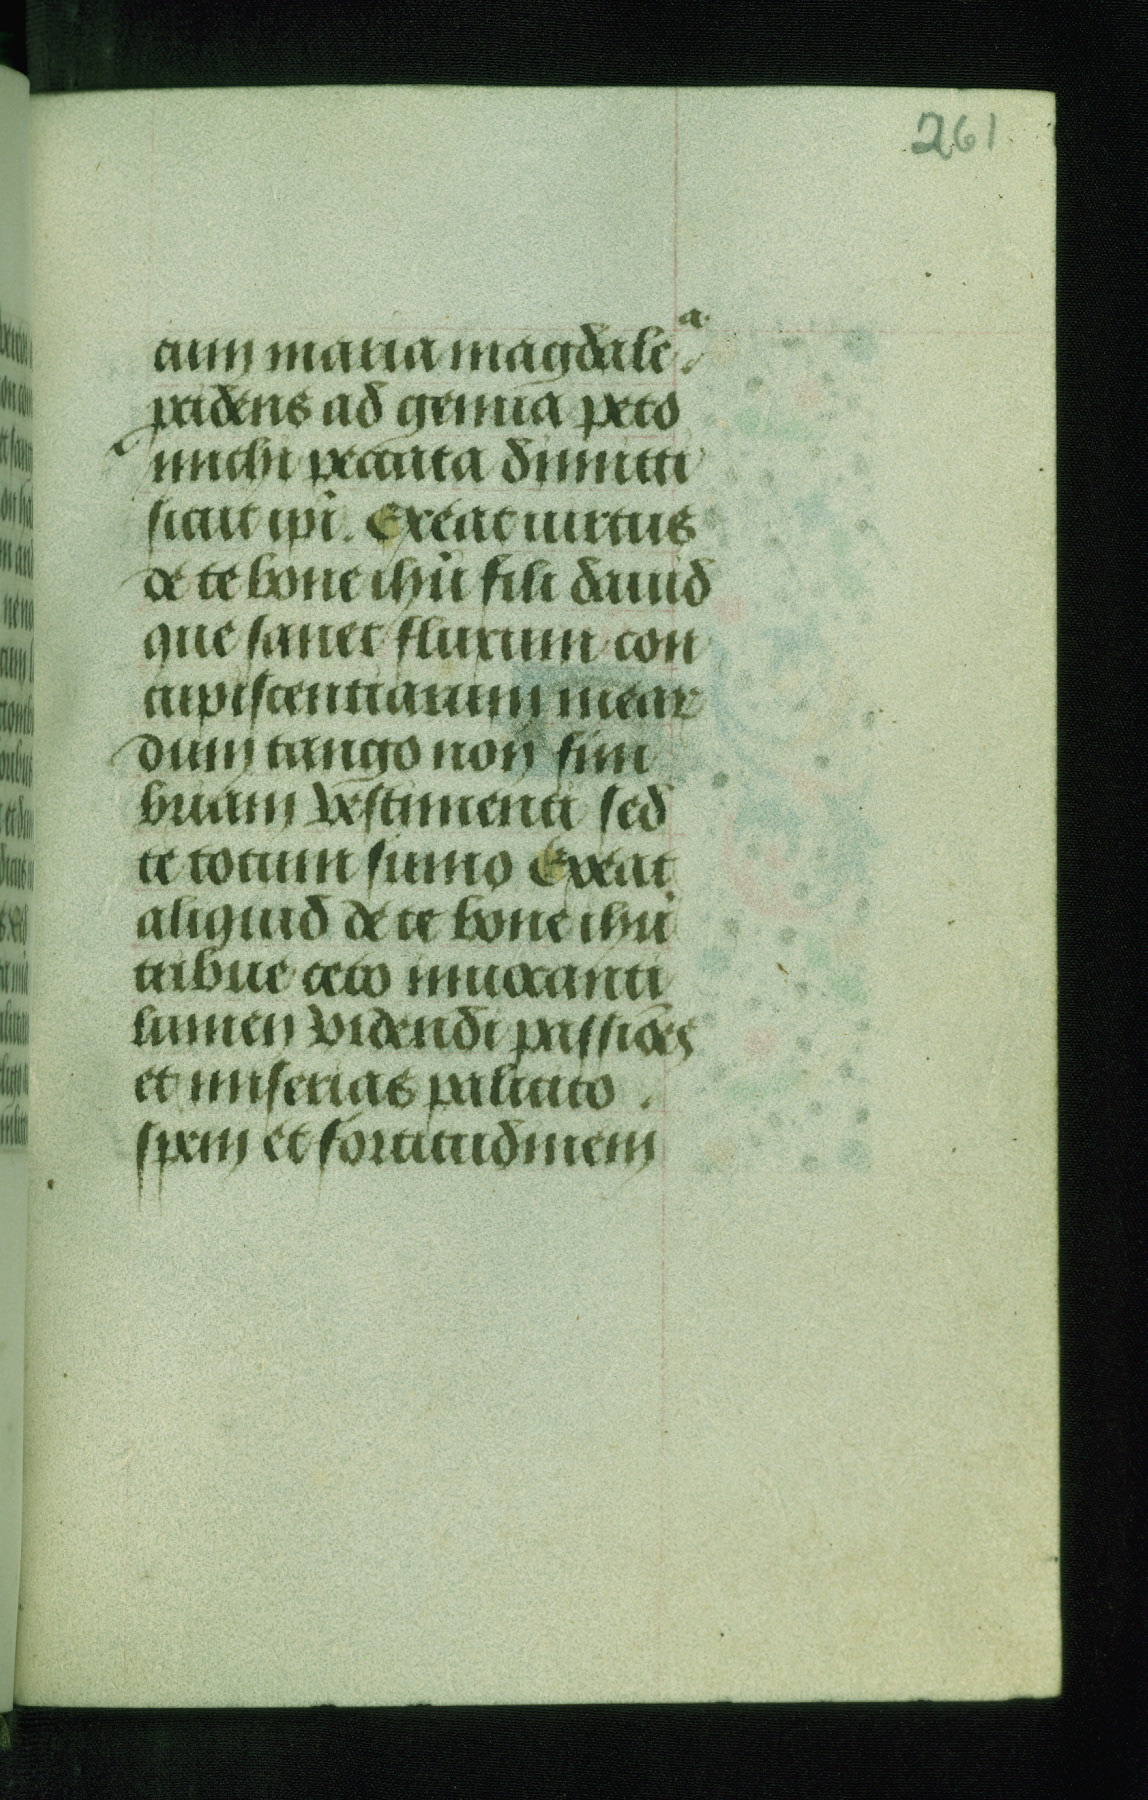 261
cum maria magdale.ᵃ
padens ad genua peto
michi peccata dimitti
sicut ipi. Exeat uirtus
de te bone ihu fili dauid
que sanet fluxum con
cupiscentiarum mear
dum tango non fim
briam vestimenti sed
te totum sumo Exeat
aliquid de te bone ihu
tribue ceco inuocanti
lumen videndi passioēs
et miserias paliato.
spem et fortitudinem